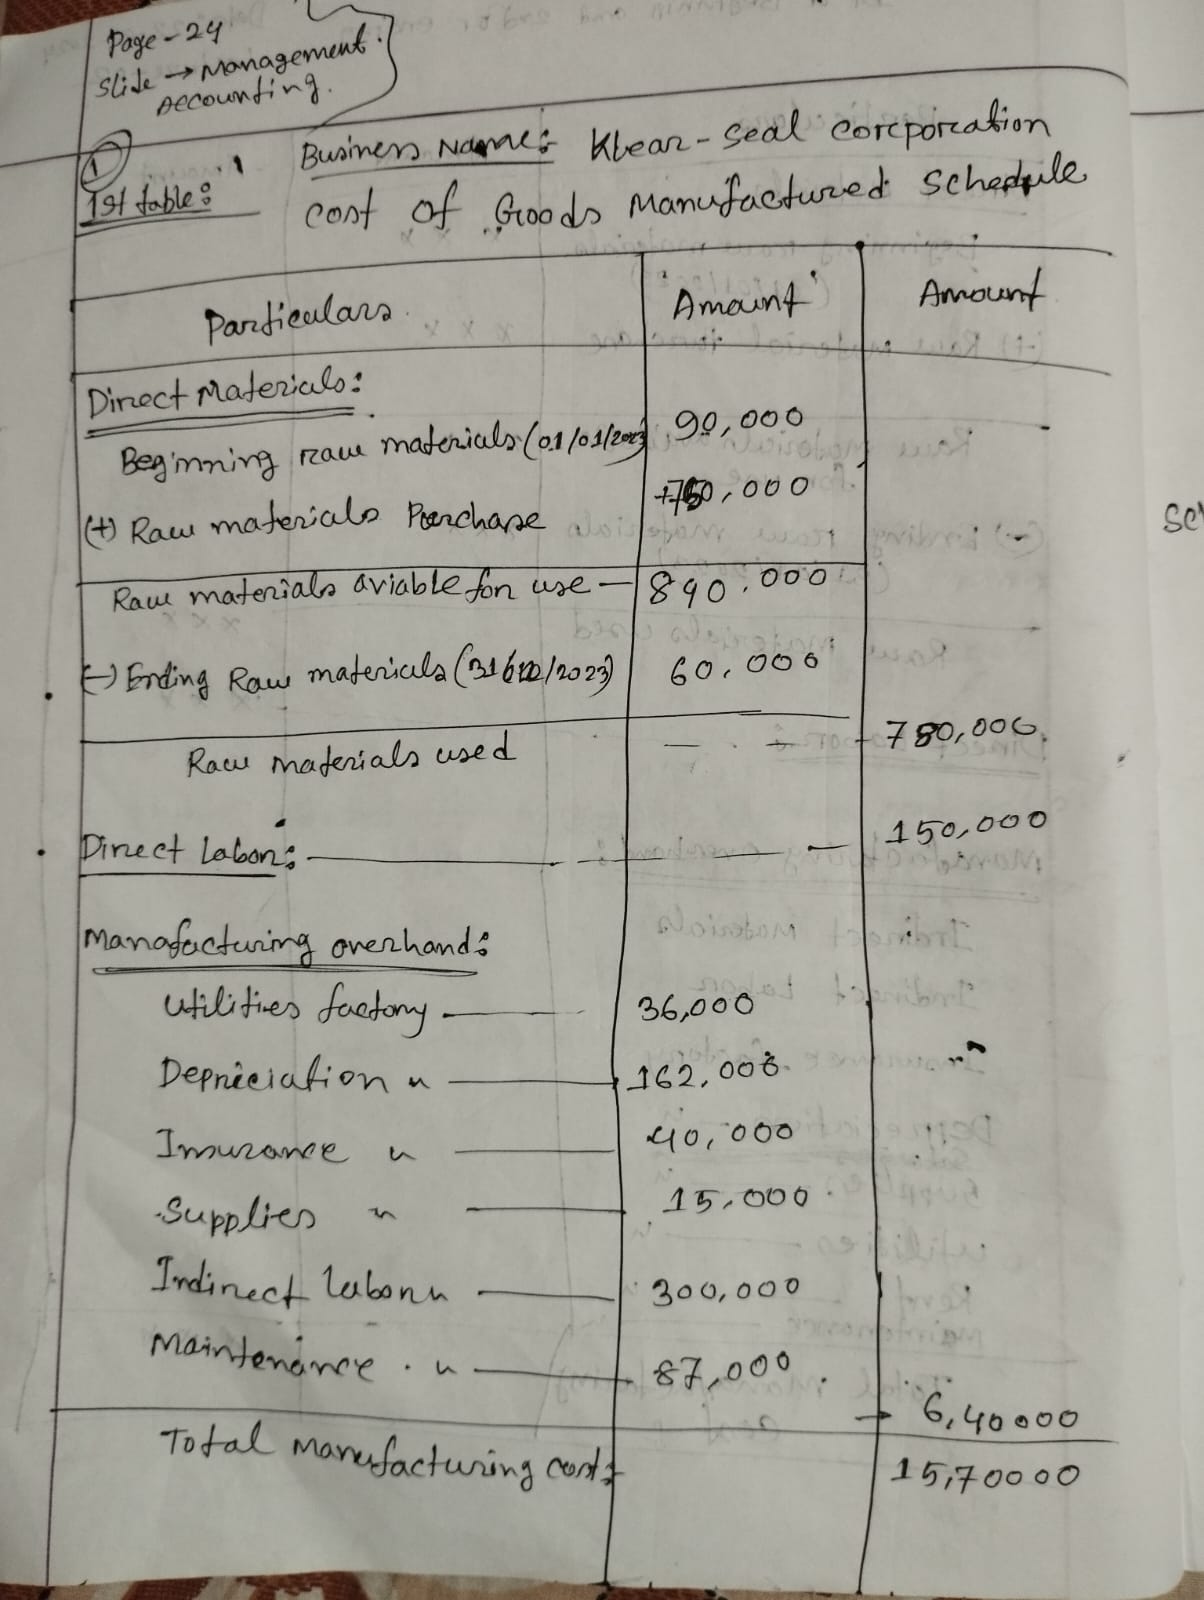 Page-24
Slide → Management
Accounting.
1
1st table:
Business Name: Klear-Seal Corporation
Cost of Goods Manufactured Schedule
Particulars Amount Amount
Direct Materials:
Beginning raw materials (01/01/2023) 90,000
(+) Raw materials Purchase 750,000
Raw materials aviable for use — 890,000
(-) Ending Raw materials (31/12/2023) 60,000
Raw materials used 780,000
Direct Labor: 150,000
Manafacturing overhand:
Utilities factory 36,000
Depreciation " 162,000
Insurance " 40,000
Supplies " 15,000
Indirect labor " 300,000
Maintenance " 87,000
6,40000
Total Manufacturing cost: 15,70000